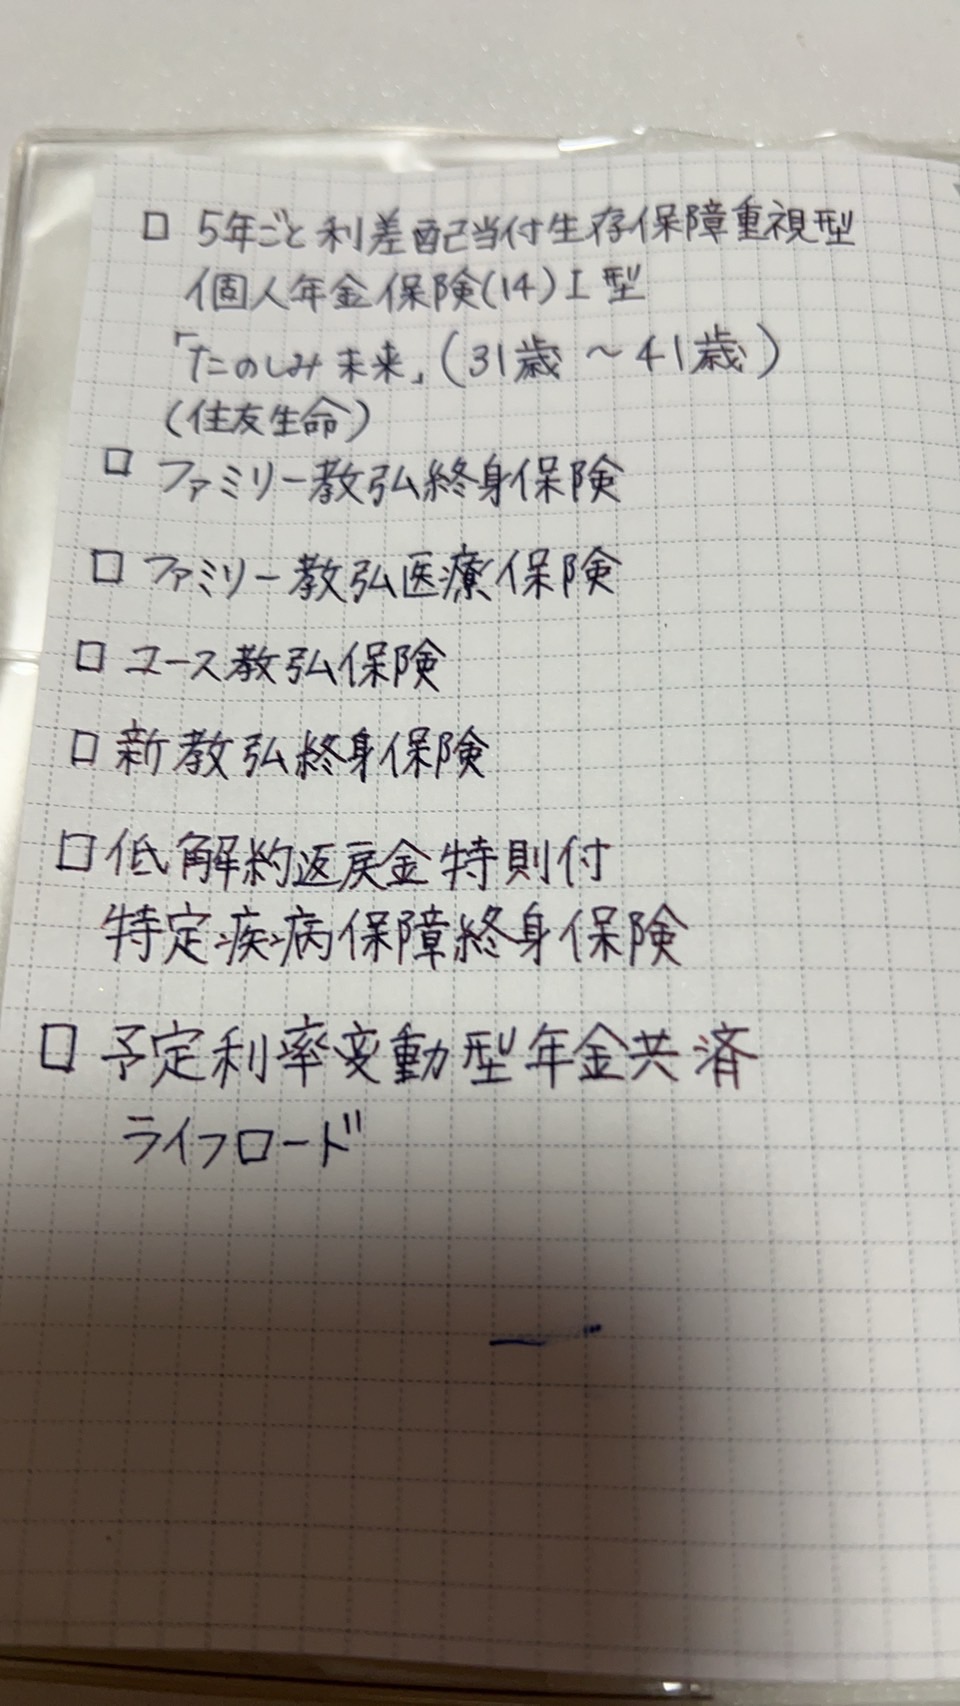 □ 5年ごと利差配当付生存保障重視型
個人年金保険(14)Ⅰ型
「たのしみ未来」(31歳～41歳)
(住友生命)
□ ファミリー教弘終身保険
□ ファミリー教弘医療保険
□ ユース教弘保険
□ 新教弘終身保険
□ 低解約返戻金特則付
特定疾病保障終身保険
□ 予定利率変動型年金共済
ライフロード